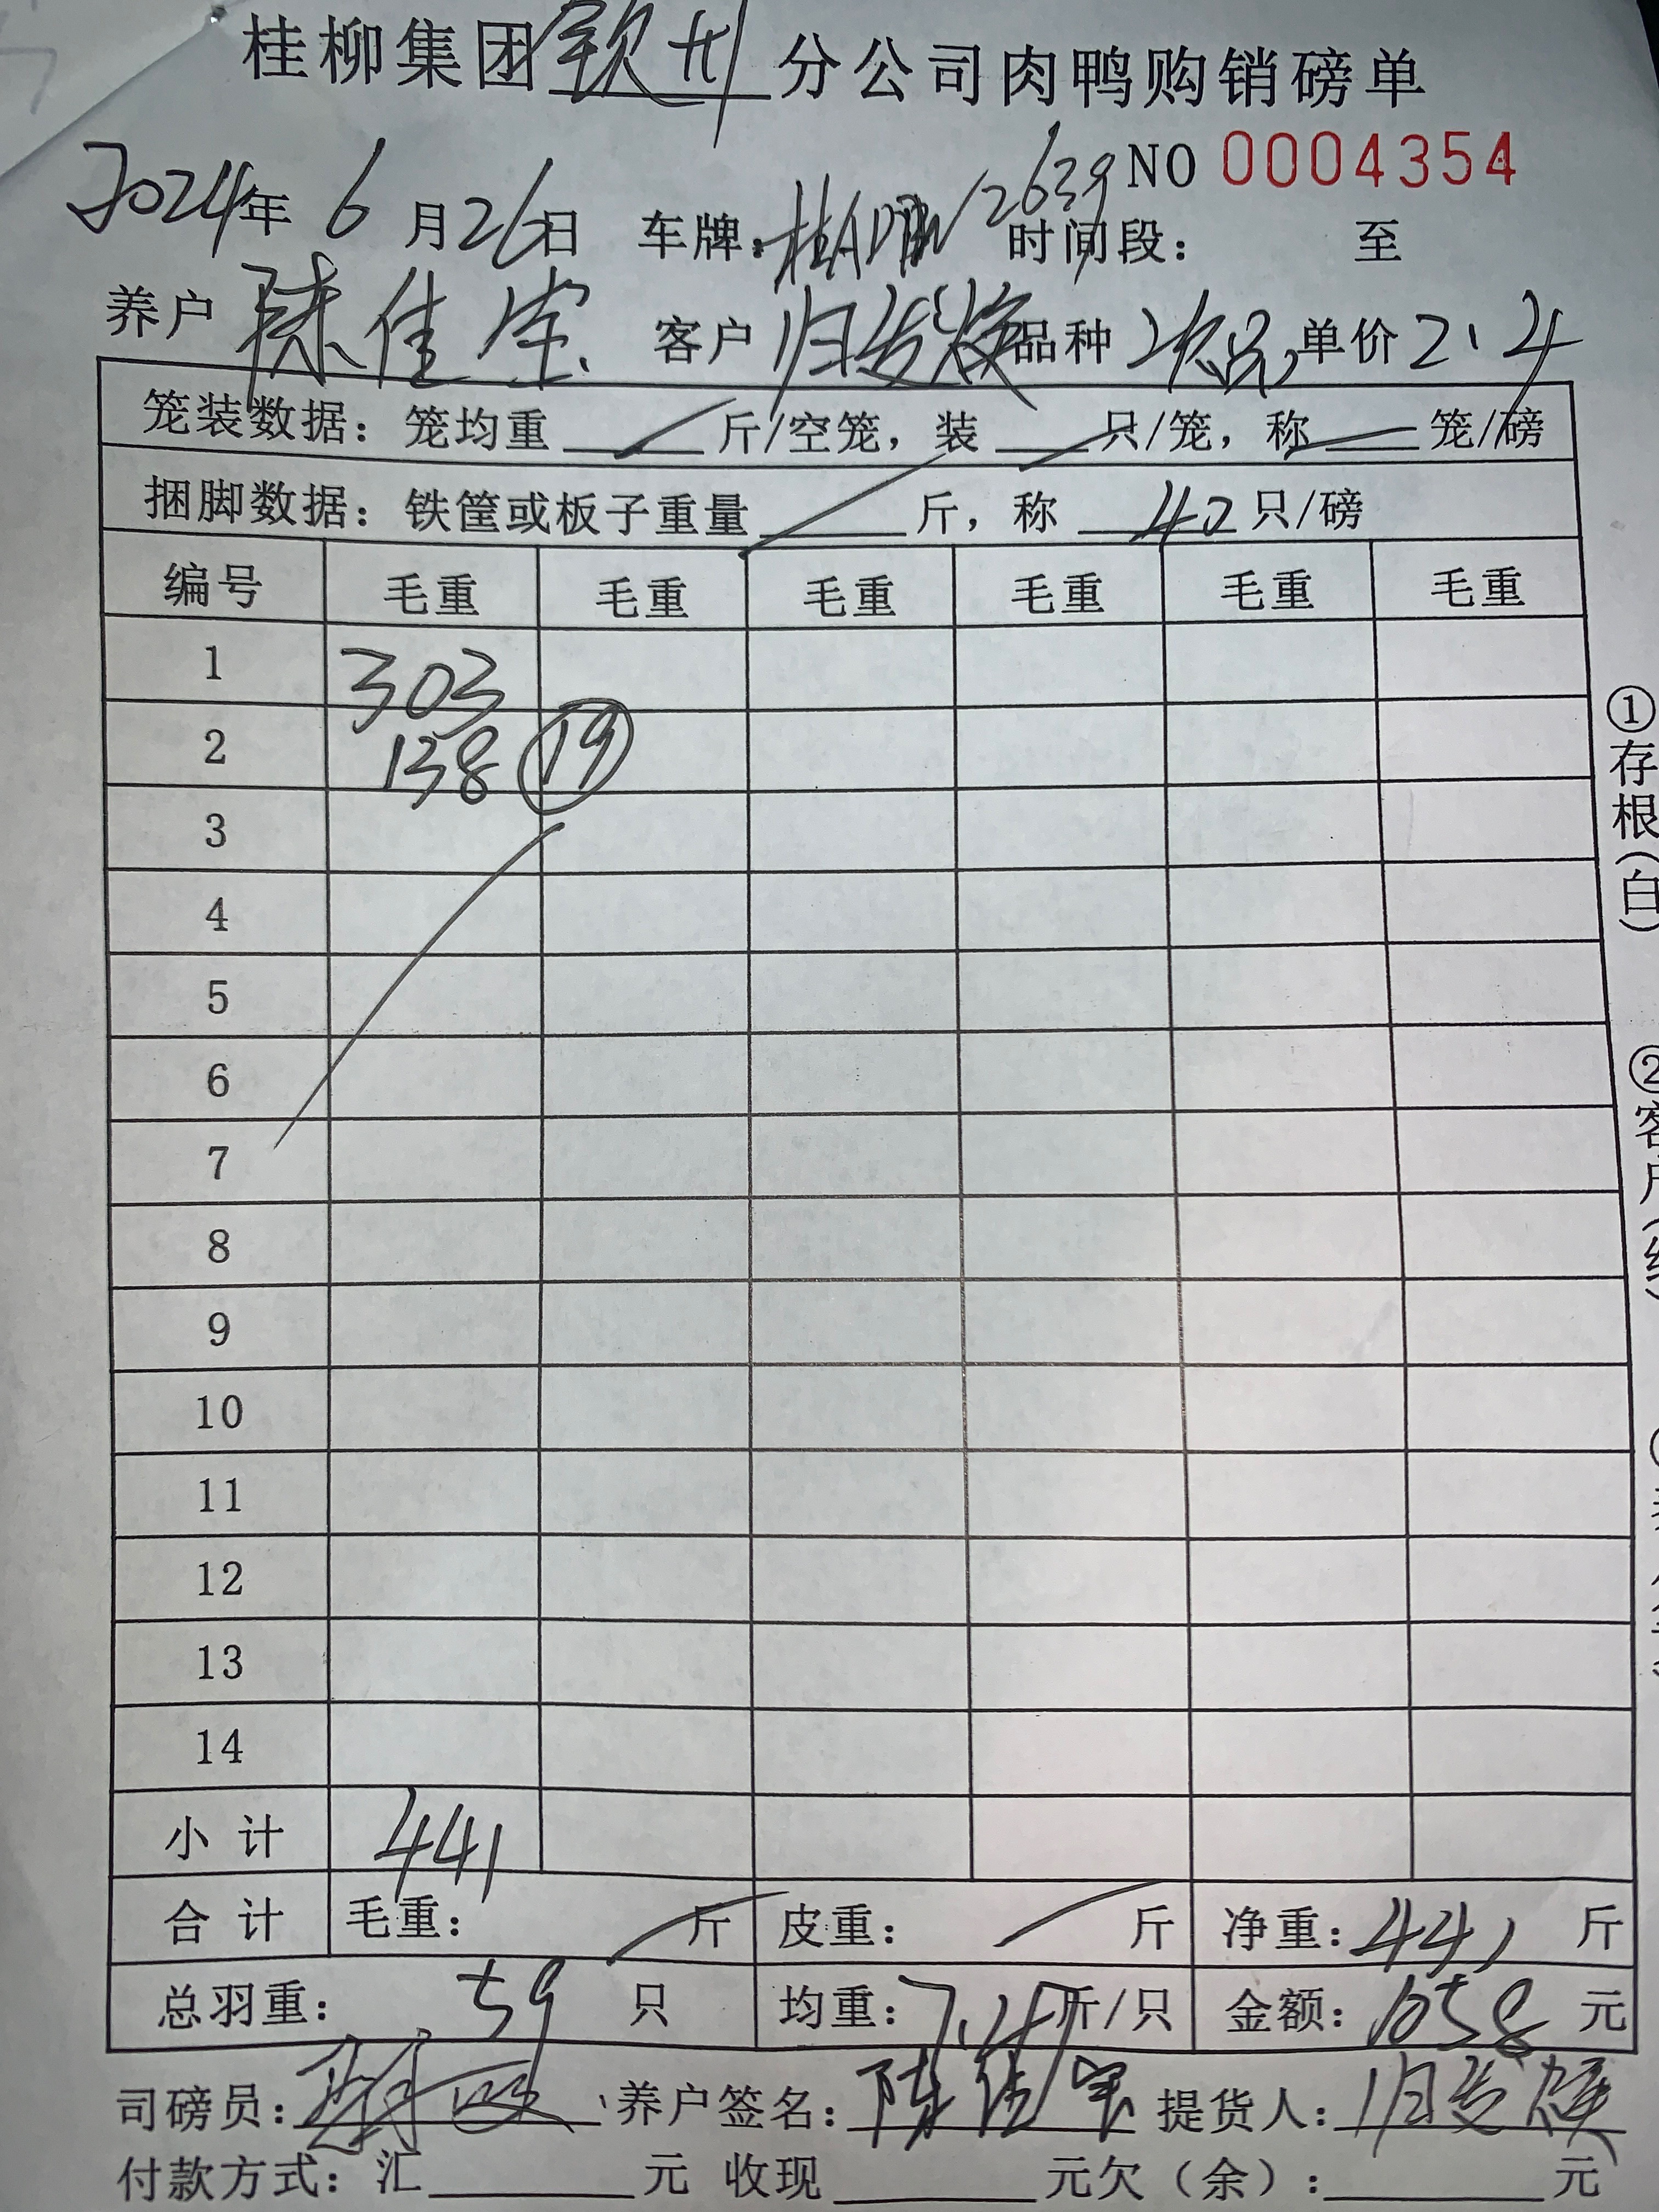 桂柳集团钦州分公司肉鸭购销磅单
NO 0004354
2024年 6月26日 车牌: 2639 时间段: 至
养户 陈佳宝 客户 归发 品种 次品 单价 2.4
笼装数据: 笼均重 斤/空笼, 装 只/笼, 称 笼/磅
捆脚数据: 铁筐或板子重量 斤, 称 40 只/磅
编号 毛重 毛重 毛重 毛重 毛重 毛重
1 303
2 138 19
3
4
5
6
7
8
9
10
11
12
13
14
小计 441
合计 毛重: 斤 皮重: 斤 净重: 441 斤
总羽重: 59 只 均重: 7.47斤/只 金额: 1058 元
司磅员: 养户签名: 陈佳宝 提货人: 归发
付款方式: 汇 元 收现 元欠(余): 元
①存根(白)
②客户(红)